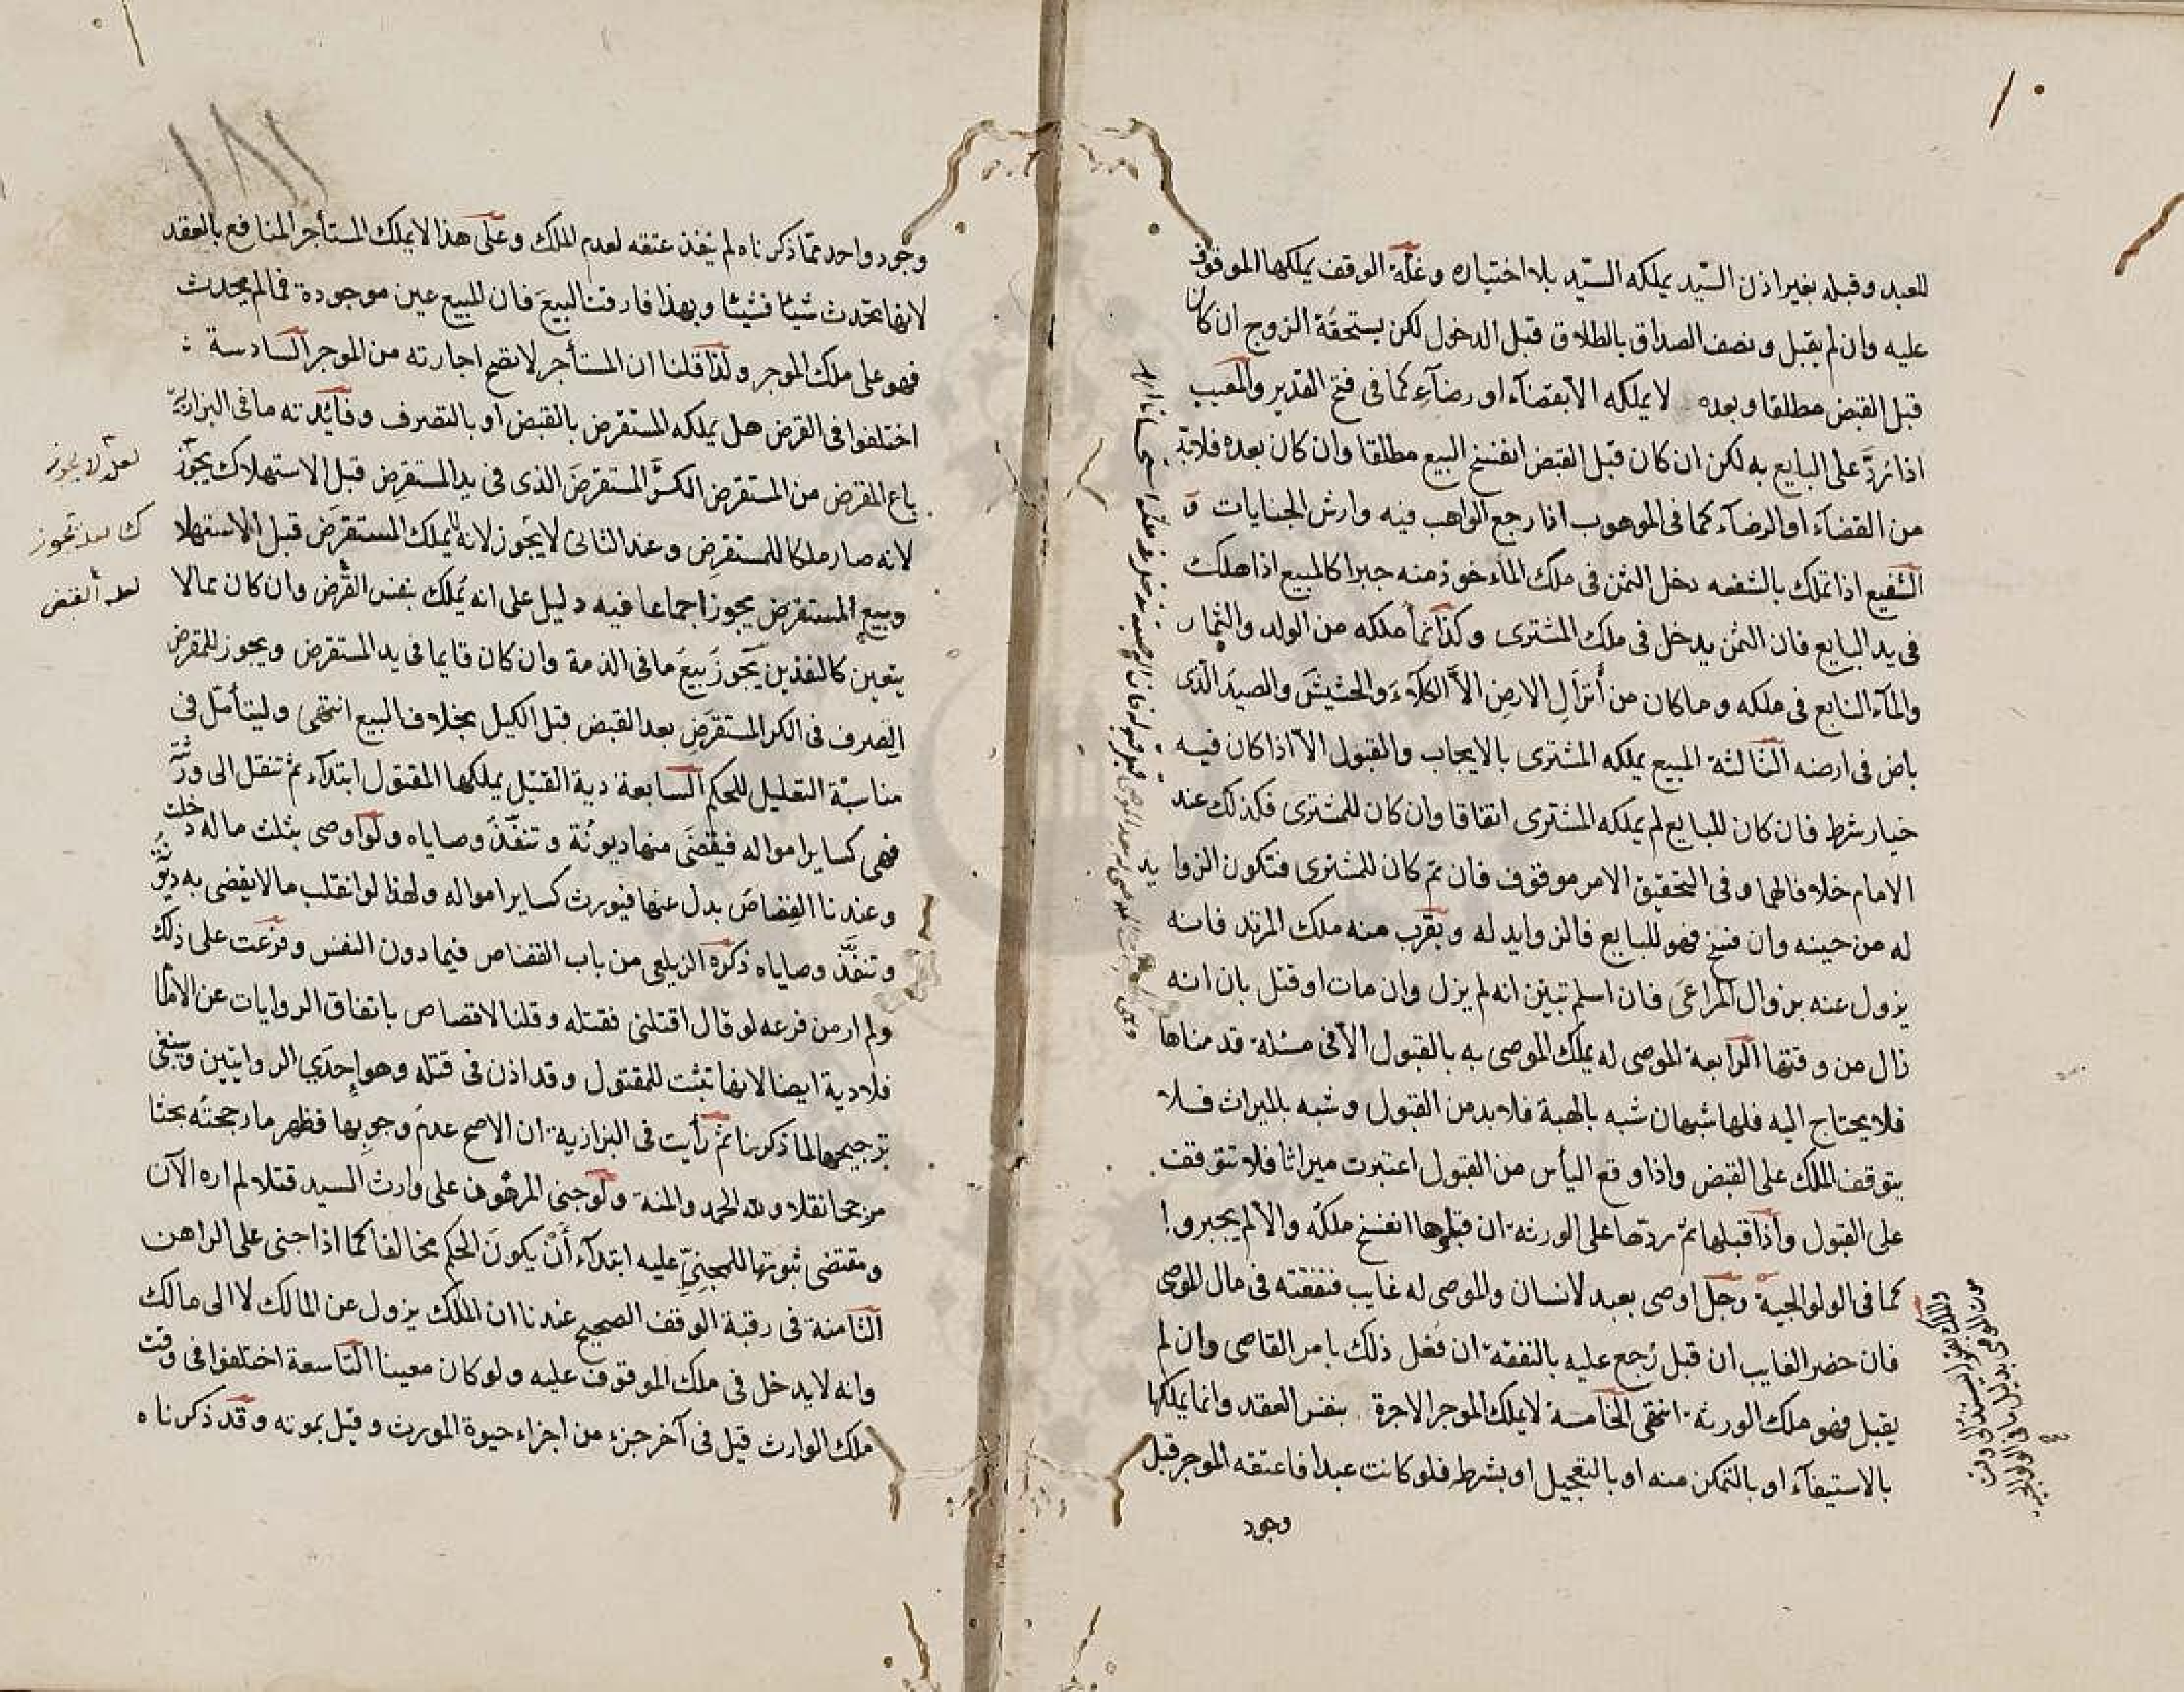 للعبد وقبله بغير اذن السّيد يملكه السّيد بلا اختياره وغلّة الوقف يملكها الموقوف
عليه وان لم يقبل ونصف الصداق بالطلاق قبل الدخول لكن يستحقّه الزوج ان كان
قبل القبض مطلقا وبعده لا يملكه الا بقضآء او رضآء كما فى فتح القدير والمعيب
اذا رُدّ على البايع به لكن ان كان قبل القبض انفسخ البيع مطلقا وان كان بعده فلابدّ
من القضآء او الرضآء كما فى الموهوب اذا رجع الواهب فيه وارش الجنايات و
الشفيع اذا تملك بالشفعه دخل الثمن فى ملك المأخوذ منه جبرا كالمبيع اذا هلك
فى يد البايع فان الثمن يدخل فى ملك المشترى وكذا نمأ ملكه من الولد والثمار
والمآء النابع فى ملكه وما كان من أنزال الارض الاّ الكلاء والحشيش والصيد الّذى
باض فى ارضه الثالثة المبيع يملكه المشترى بالايجاب والقبول الاّ اذا كان فيه
خيار شرط فان كان للبايع لم يملكه المشترى اتفاقا وان كان للمشترى فكذلك عند
الامام خلافا لهما وفى التحقيق الامر موقوف فان تم كان للمشترى فتكون الزوايد
له من حينه وان فسخ فهو للبايع فالزوايد له وبقرب منه ملك المرتد فانه
يزول عنه بزوال المراعى فان اسلم تبيّن انه لم يزل وان مات او قتل بان انه
زال من وقتها الرابعة الموصى له يملك الموصى به بالقبول الاّ فى مسئلة قدمناها
فلا يحتاج اليه فلها شبهان شبه بالهبة فلابد من القبول وشبه بالميراث فلا
يتوقف الملك على القبض واذا وقع اليأس من القبول اعتبرت ميراثا فلا تتوقف
على القبول واذا قبلها ثم ردّها على الورثة ان قبلوها انفسخ ملكه والا لم يجبروا
كما فى الولوالجية رجل اوصى بعبد لانسان والموصى له غايب فنفقته فى مال الموصى
فان حضر الغايب ان قبل رُجع عليه بالنفقة ان فعل ذلك بامر القاضى وان لم
يقبل فهو ملك الورثة انتهى الخامسة لا يملك الموجر الاجرة بنفس العقد وانما يملكها
بالاستيفآء او بالتمكن منه او بالتعجيل او بشرطه فلو كانت عبدا فاعتقه الموجر قبل
وجود
وجود واحد ممّا ذكرناه لم ينفذ عتقه لعدم الملك وعلى هذا لا يملك المستأجر المنافع بالعقد
لانها تحدث شيئا فشيئا وبهذا فارقت البيع فان المبيع عين موجودة فما لم يحدث
فهو على ملك الموجر ولذا قلنا ان المستأجر لا تصح اجارته من الموجر السادسة
اختلفوا فى القرض هل يملكه المستقرض بالقبض او بالتصرف وفائدته ما فى البزازية
باع المقرض من المستقرض الكرّ المستقرض الذى فى يد المستقرض قبل الاستهلاك يجوز
لانه صار ملكا للمستقرض وعند الثانى لا يجوز لانه لا يملك المستقرض قبل الاستهلا
وبيع المستقرض يجوز اجماعا فيه دليل على انه يملك بنفس القرض وان كان مما لا
يتعين كالنقدين يجوز بيع ما فى الذمة وان كان قايما فى يد المستقرض ويجوز للمقرض
التصرف فى الكر المستقرض بعد القبض قبل الكيل بخلاف البيع انتهى وليتأمّل فى
مناسبة التعليل للحكم السابعة دية القتيل يملكها المقتول ابتدآء ثم تنقل الى ورثته
فهى كساير امواله فيقضى منها ديونه وتنفّذ وصاياه ولو اوصى بثلث ماله دخلت
وعندنا القصاص بدل عنها فيورث كساير امواله ولهذا لو انقلب مالا يقضى به ديونه
وتنفّذ وصاياه ذكره الزيلعى من باب القصاص فيما دون النفس وفرّعت على ذلك
ولم ار من فرعه لو قال اقتلنى فقتله وقلنا لا قصاص باتفاق الروايات عن الاما
فلا دية ايضا لانها تثبت للمقتول وقد اذن فى قتله وهو إحدى الروايتين وينبغى
ترجيحها لما ذكرنا ثم رأيت فى البزازية ان الاصح عدم وجوبها فظهر ما رجحته بحثا
مرجحا نقلا ولله الحمد والمنة ولو جنى المرهون على وارث السيد قتلا لم اره الآن
ومقتضى ثبوتها للمجنىّ عليه ابتدآء أن يكون الحكم مخالفا كما اذا جنى على الراهن
الثامنة فى رقبة الوقف الصحيح عندنا ان الملك يزول عن المالك لا الى مالك
وانه لا يدخل فى ملك الموقوف عليه ولو كان معينا التاسعة اختلفوا فى وقت
ملك الوارث قيل فى آخر جزء من اجزاء حيوة المورث وقيل بموته وقد ذكرناه
لعلّه لا يجوز
لعله القبض